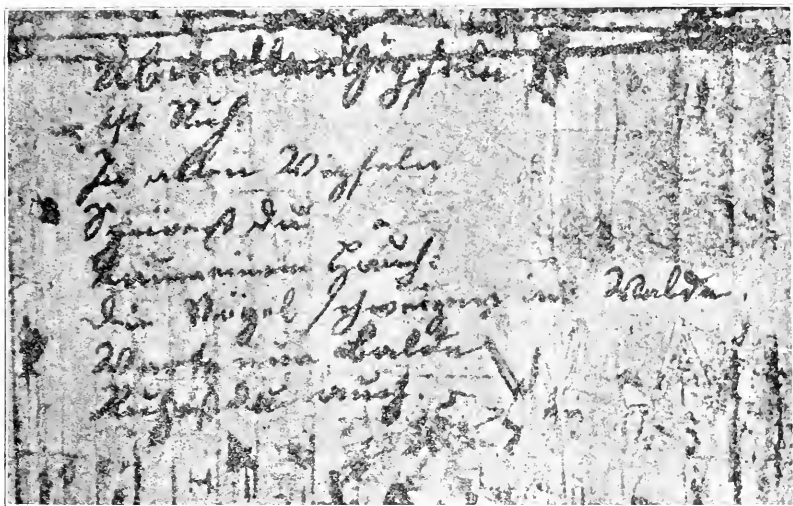 Über allen Gipfeln
ist Ruh
In allen Wipfeln
Spürest du
Kaum einen Hauch.
Die Vögel schweigen im Walde.
Warte nur balde
Ruhest du auch.